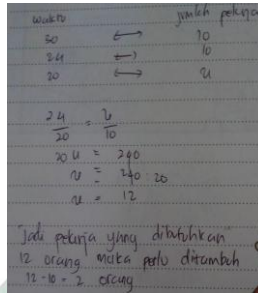 waktu jumlah pekerja
30 ↔ 10
24 ↔ 10
20 ↔ u
24/20 = u/10
20 u = 240
u = 240 : 20
u = 12
Jadi pekerja yang dibutuhkan
12 orang maka perlu ditambah
12 - 10 = 2 orang